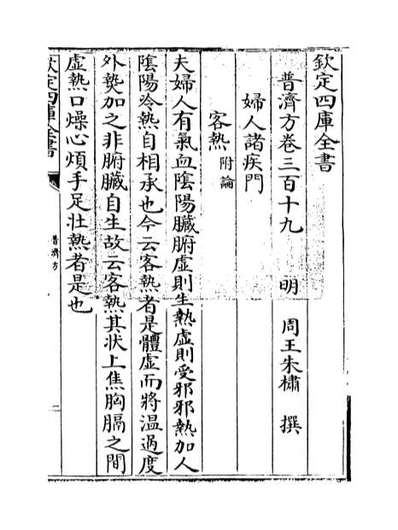 欽定四庫全書
普濟方卷三百十九　明　周王朱橚　撰
婦人諸疾門
客熱附論
夫婦人有氣血隂陽臓腑虚則生熱虚則受邪邪熱加人
隂陽冷熱自相承也今云客熱者是體虚而將温過度
外熱加之非腑臓自生故云客熱其状上焦胸膈之間
虚熱口燥心煩手足壮熱者是也
欽定四庫全書
普濟方